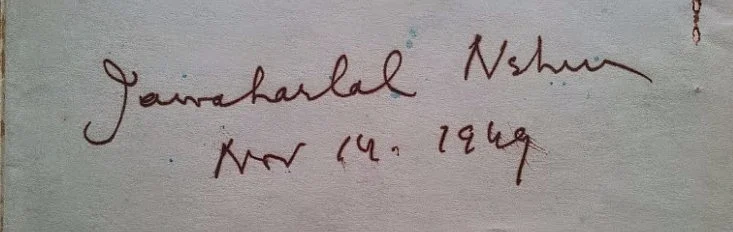 Jawaharlal Nehru
Nov 14. 1949